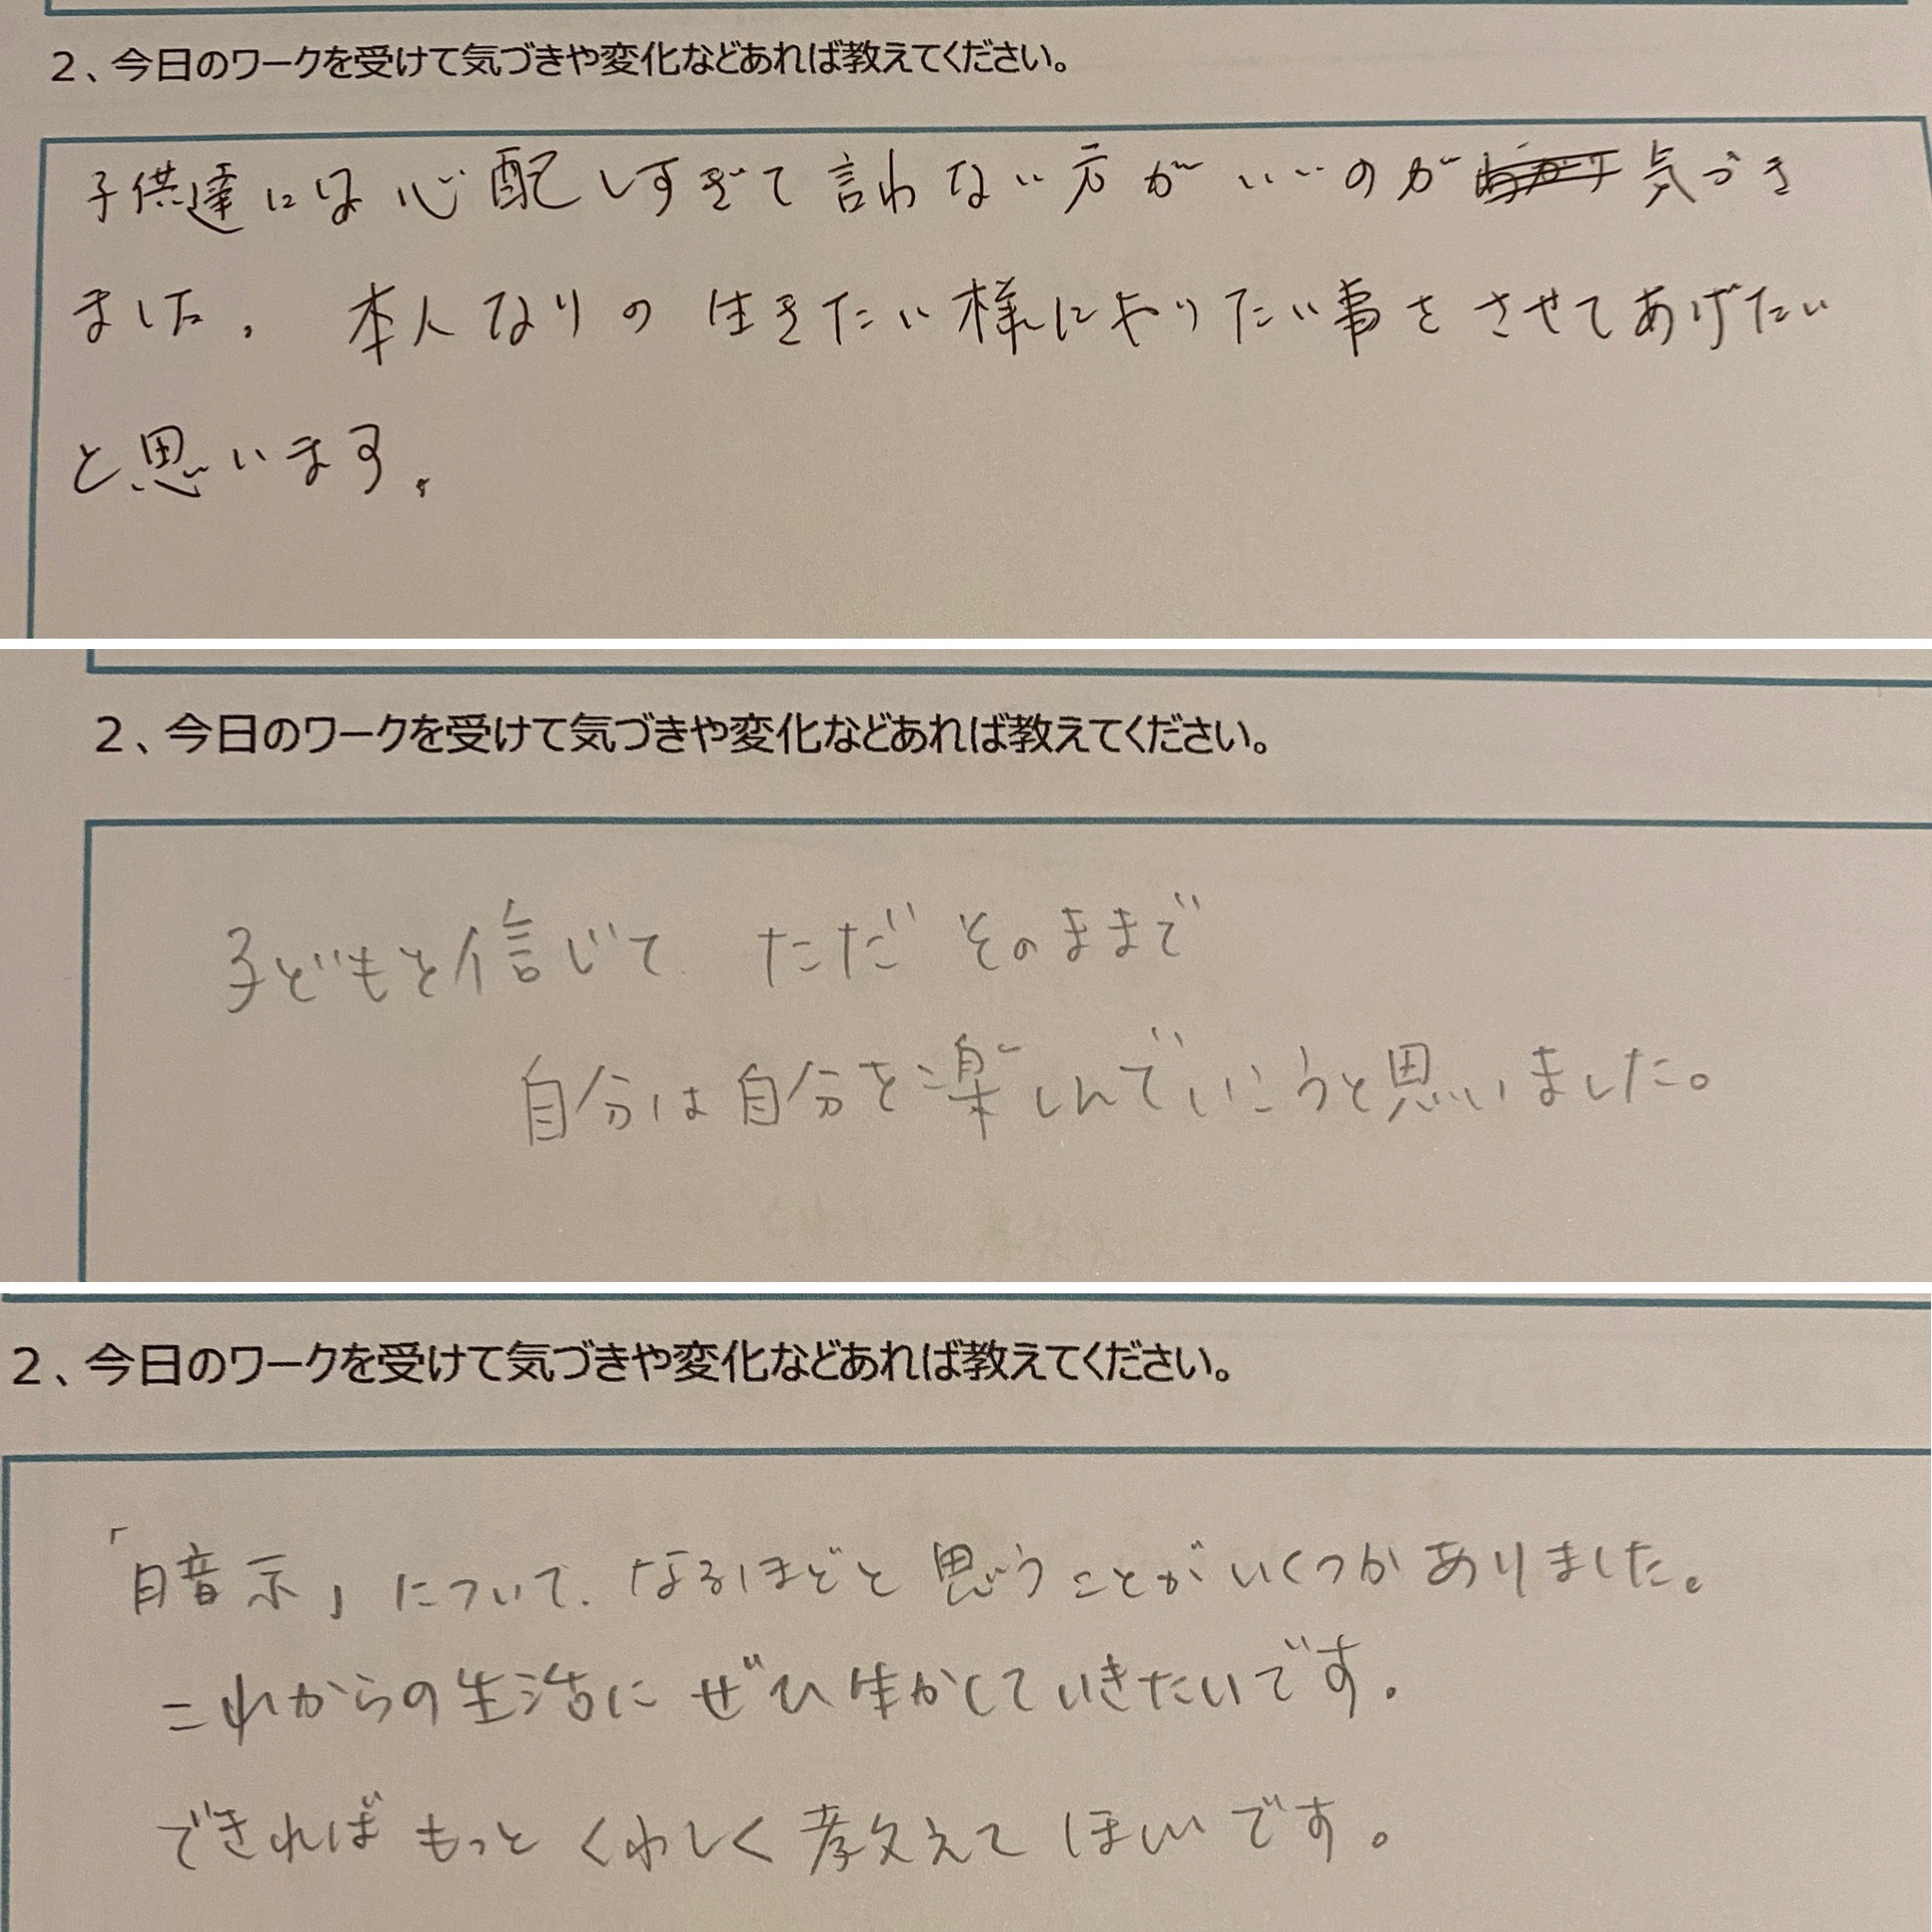 2、今日のワークを受けて気づきや変化などあれば教えてください。
子供達には心配しすぎて言わない方がいいのが気づき
ました。本人なりの生きたい様にやりたい事をさせてあげたい
と思います。
2、今日のワークを受けて気づきや変化などあれば教えてください。
子どもを信じて ただそのままで
自分は自分を楽しんでいこうと思いました。
2、今日のワークを受けて気づきや変化などあれば教えてください。
「暗示」について、なるほどと思うことがいくつかありました。
これからの生活にぜひ生かしていきたいです。
できればもっとくわしく教えてほしいです。